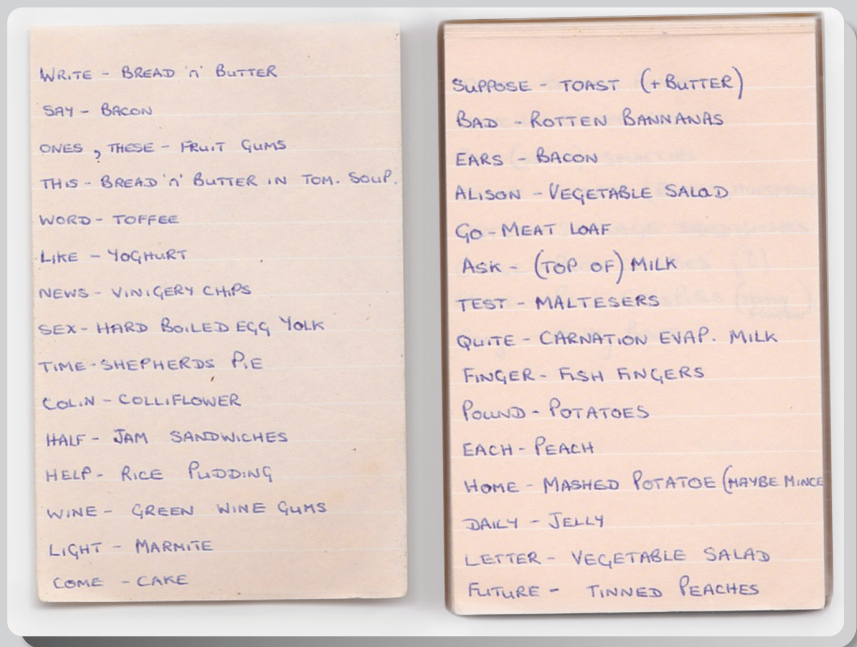 WRITE - BREAD 'n' BUTTER
SAY - BACON
ONES, THESE - FRUIT GUMS
THIS - BREAD 'n' BUTTER IN TOM. SOUP.
WORD - TOFFEE
LIKE - YOGHURT
NEWS - VINIGERY CHIPS
SEX - HARD BOILED EGG YOLK
TIME - SHEPHERDS PIE
COLIN - COLLIFLOWER
HALF - JAM SANDWICHES
HELP - RICE PUDDING
WINE - GREEN WINE GUMS
LIGHT - MARMITE
COME - CAKE
SUPPOSE - TOAST (+ BUTTER)
BAD - ROTTEN BANNANAS
EARS - BACON
ALISON - VEGETABLE SALAD
GO - MEAT LOAF
ASK - (TOP OF) MILK
TEST - MALTESERS
QUITE - CARNATION EVAP. MILK
FINGER - FISH FINGERS
POUND - POTATOES
EACH - PEACH
HOME - MASHED POTATOE (MAYBE MINCE
DAILY - JELLY
LETTER - VEGETABLE SALAD
FUTURE - TINNED PEACHES